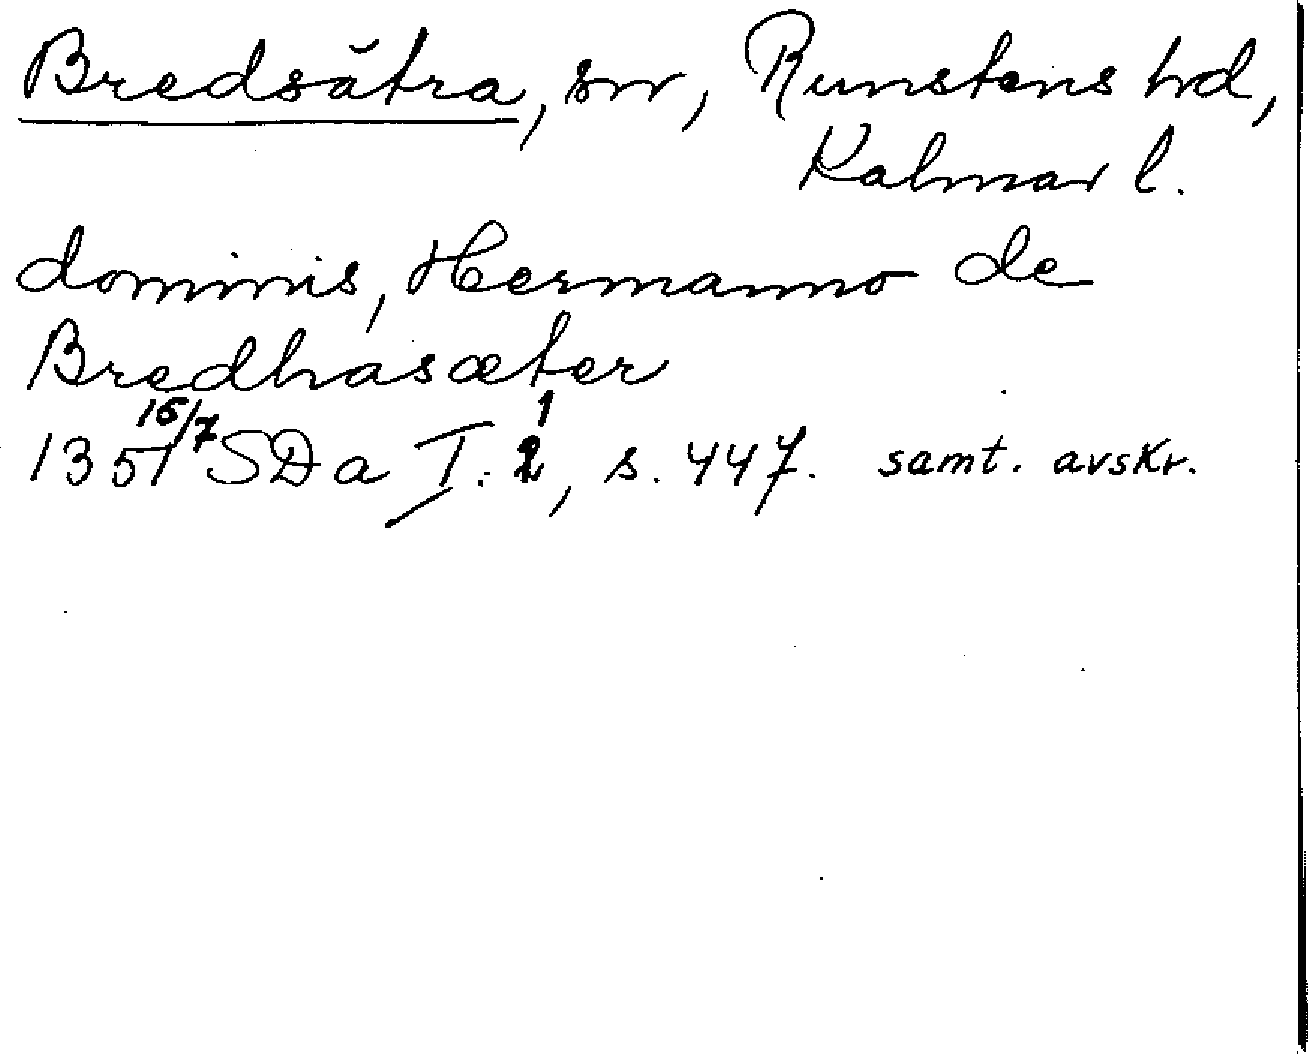 Bredsätra, sn, Runstens hd,
Kalmar l.
dominis, Hermanno de
Bredhasæter
1351 16/7 SDa I: 1, s. 447. samt. avskr.